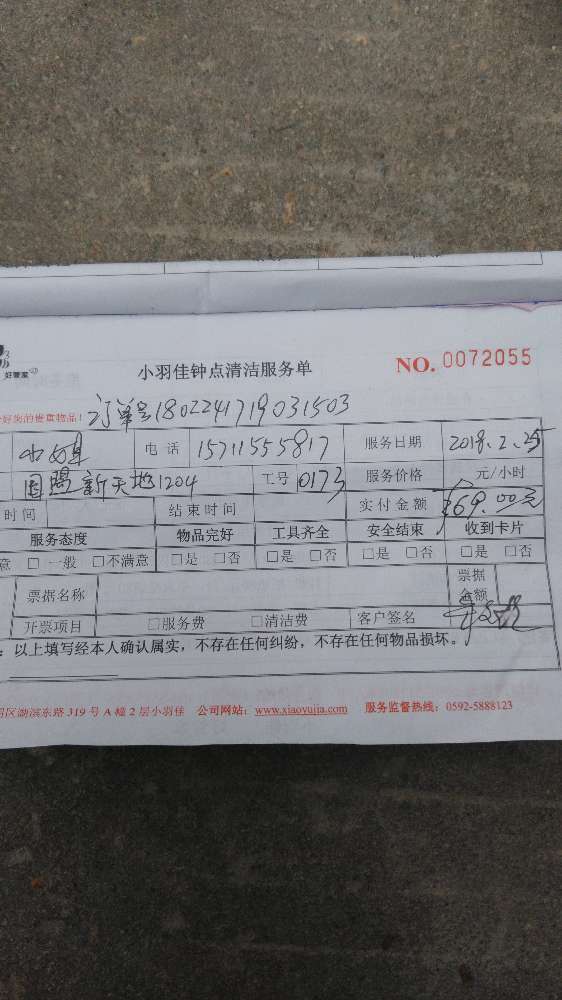 好管家
小羽佳钟点清洁服务单
NO. 0072055
好您的贵重物品!
订单号180224171903150​3
电话 15711555817 服务日期 2018.2.25
国盟新天地1204 工号 0173 服务价格 元/小时
时间 结束时间 实付金额 69.00元
服务态度 物品完好 工具齐全 安全结束 收到卡片
意 □一般 □不满意 □是 □否 □是 □否 □是 □否 □是 □否
票据名称 票据金额
开票项目 □服务费 □清洁费 客户签名
:以上填写经本人确认属实,不存在任何纠纷,不存在任何物品损坏。
明区湖滨东路 319 号 A 幢 2 层小羽佳 公司网站:www.xiaoyujia.com 服务监督热线:0592-5888123